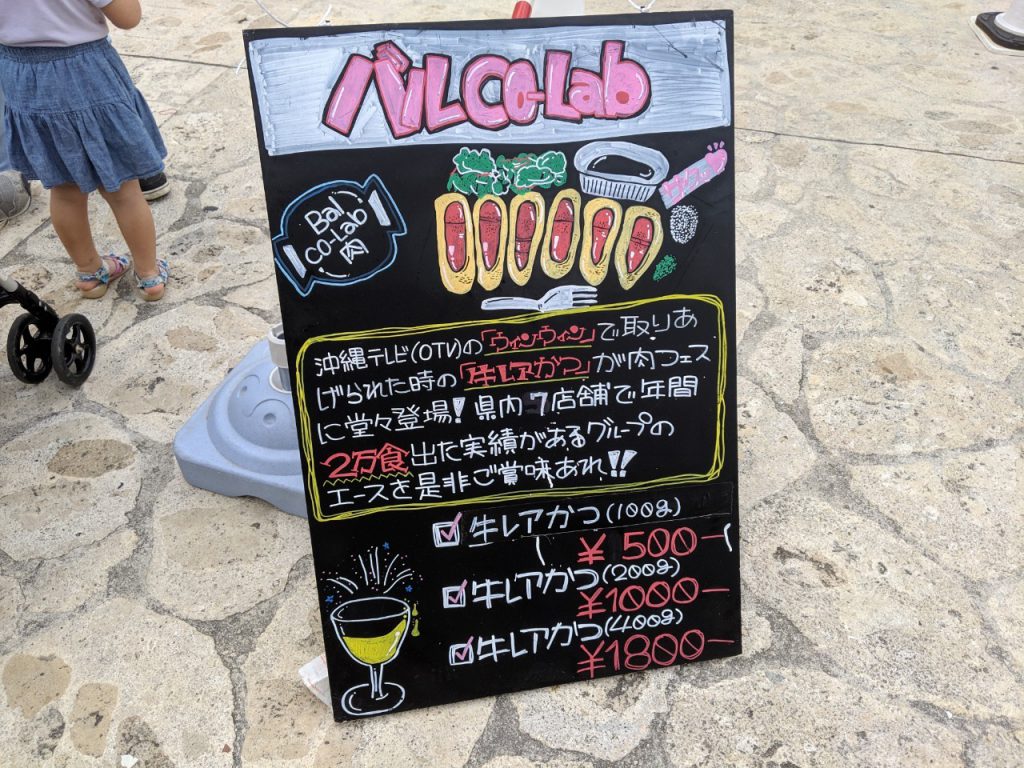 バルCo-Lab
Bal
Co-Lab
肉
沖縄テレビ(OTV)の「ウィンウィン」で取りあ
げられた時の「牛レアかつ」が肉フェス
に堂々登場!県内7店舗で年間
2万食出た実績があるグループの
エースを是非ご賞味あれ!!
牛レアかつ(100g)
¥500ー
牛レアかつ(200g)
¥1000ー
牛レアかつ(400g)
¥1800ー